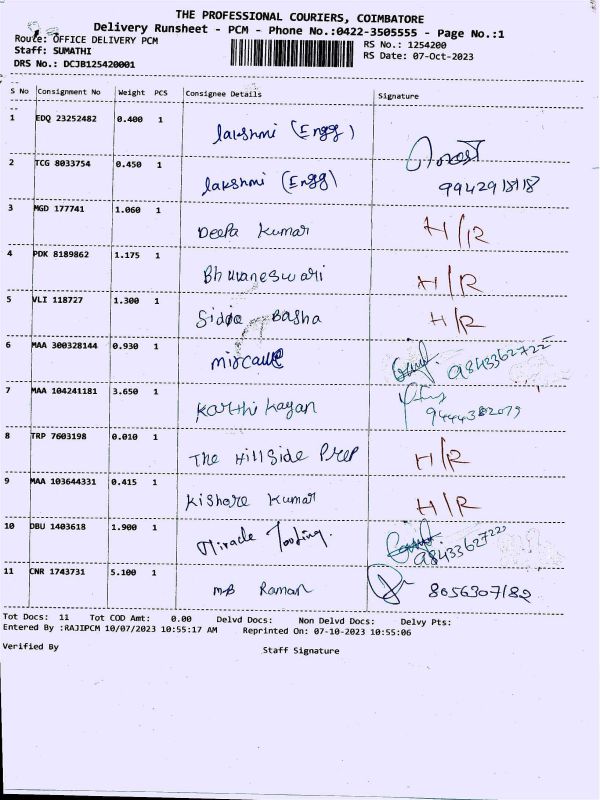 THE PROFESSIONAL COURIERS, COIMBATORE
Delivery Runsheet - PCM - Phone No.:0422-3505555 - Page No.:1
Route: OFFICE DELIVERY PCM
RS No.: 1254200
Staff: SUMATHI
RS Date: 07-Oct-2023
DRS No.: DCJB125420001
S No Consignment No Weight PCS Consignee Details Signature
1 EDQ 23252482 0.400 1 Lakshmi (Engg)
2 TCG 8033754 0.450 1 Lakshmi (Engg) 9942918118
3 MGD 177741 1.060 1 Deepa Kumar H/R
4 PDK 8189862 1.175 1 Bhuvaneswari H/R
5 VLI 118727 1.300 1 Basha H/R
6 MAA 300328144 0.930 1 9843362722
7 MAA 104241181 3.650 1 Karthi Kayan 9444382079
8 TRP 7603198 0.010 1 The Hillside Prep H/R
9 MAA 103644331 0.415 1 Kishore Kumar H/R
10 DBU 1403618 1.900 1 Miracle Tooling. 9843362722
11 CNR 1743731 5.100 1 MB Raman 8056307182
Tot Docs: 11 Tot COD Amt: 0.00 Delvd Docs: Non Delvd Docs: Delvy Pts:
Entered By :RAJIPCM 10/07/2023 10:55:17 AM Reprinted On: 07-10-2023 10:55:06
Verified By Staff Signature